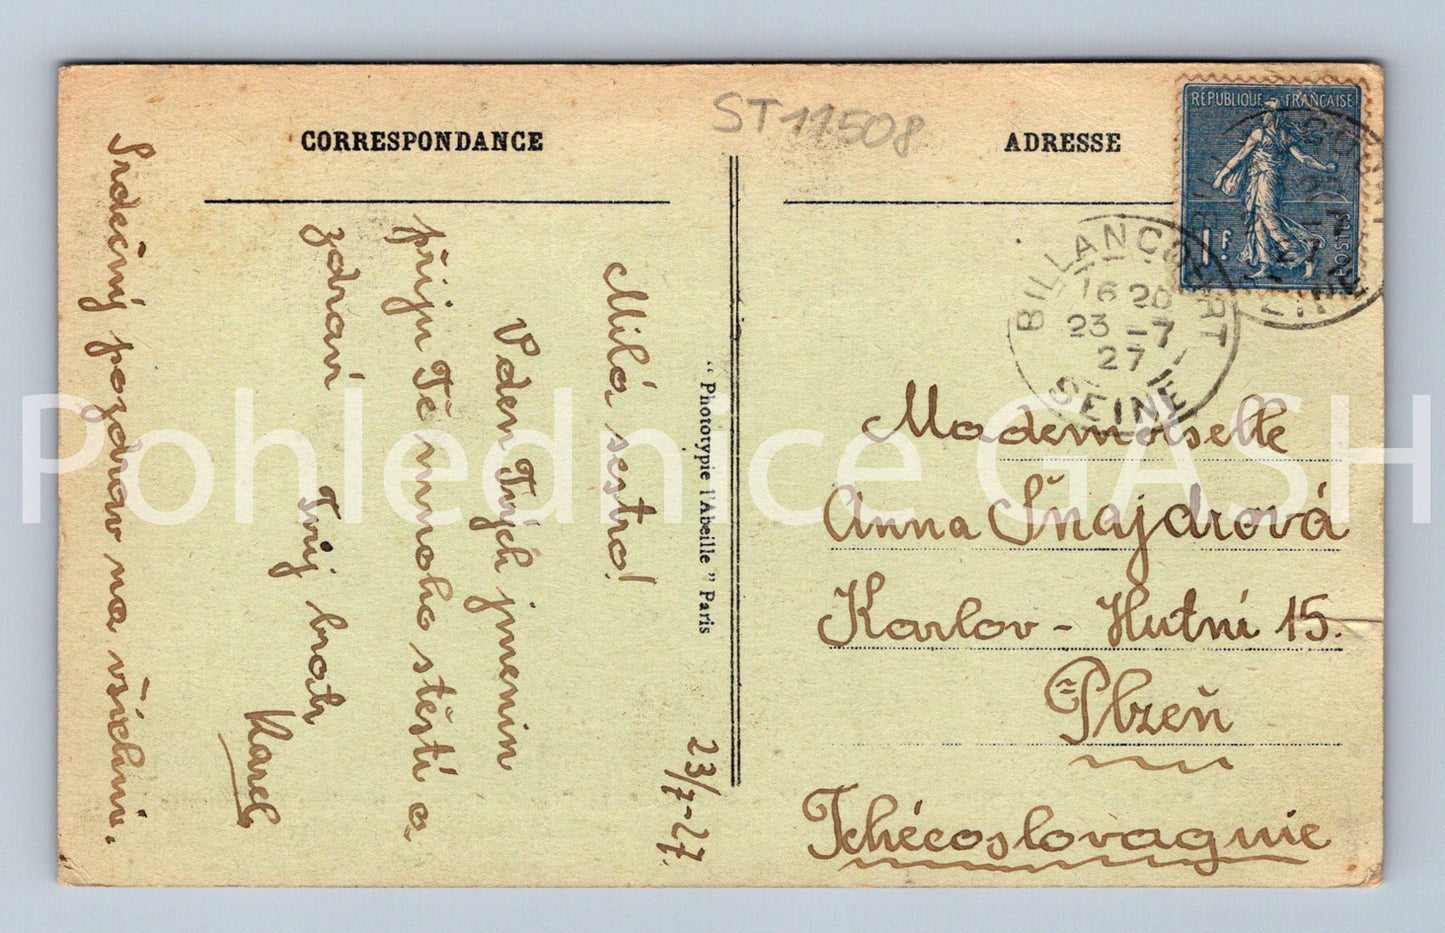 CORRESPONDANCE
ST11508
ADRESSE
RÉPUBLIQUE FRANÇAISE
1F.
POSTES
BILLANCOURT
16 20
23 - 7
27
SEINE
23/7-27.
Milá sestro!
V den Tvých jmenin
přiju Tě mnoho štěstí a
zdraví
Tvůj bratr
Karel
Srdečný pozdrav na všichni.
"Phototypie l'Abeille" Paris
Mademoiselle
Anna Šnajdrová
Karlov - Hutní 15.
Plzeň
Tchécoslovaquie
Pohlednice GASH